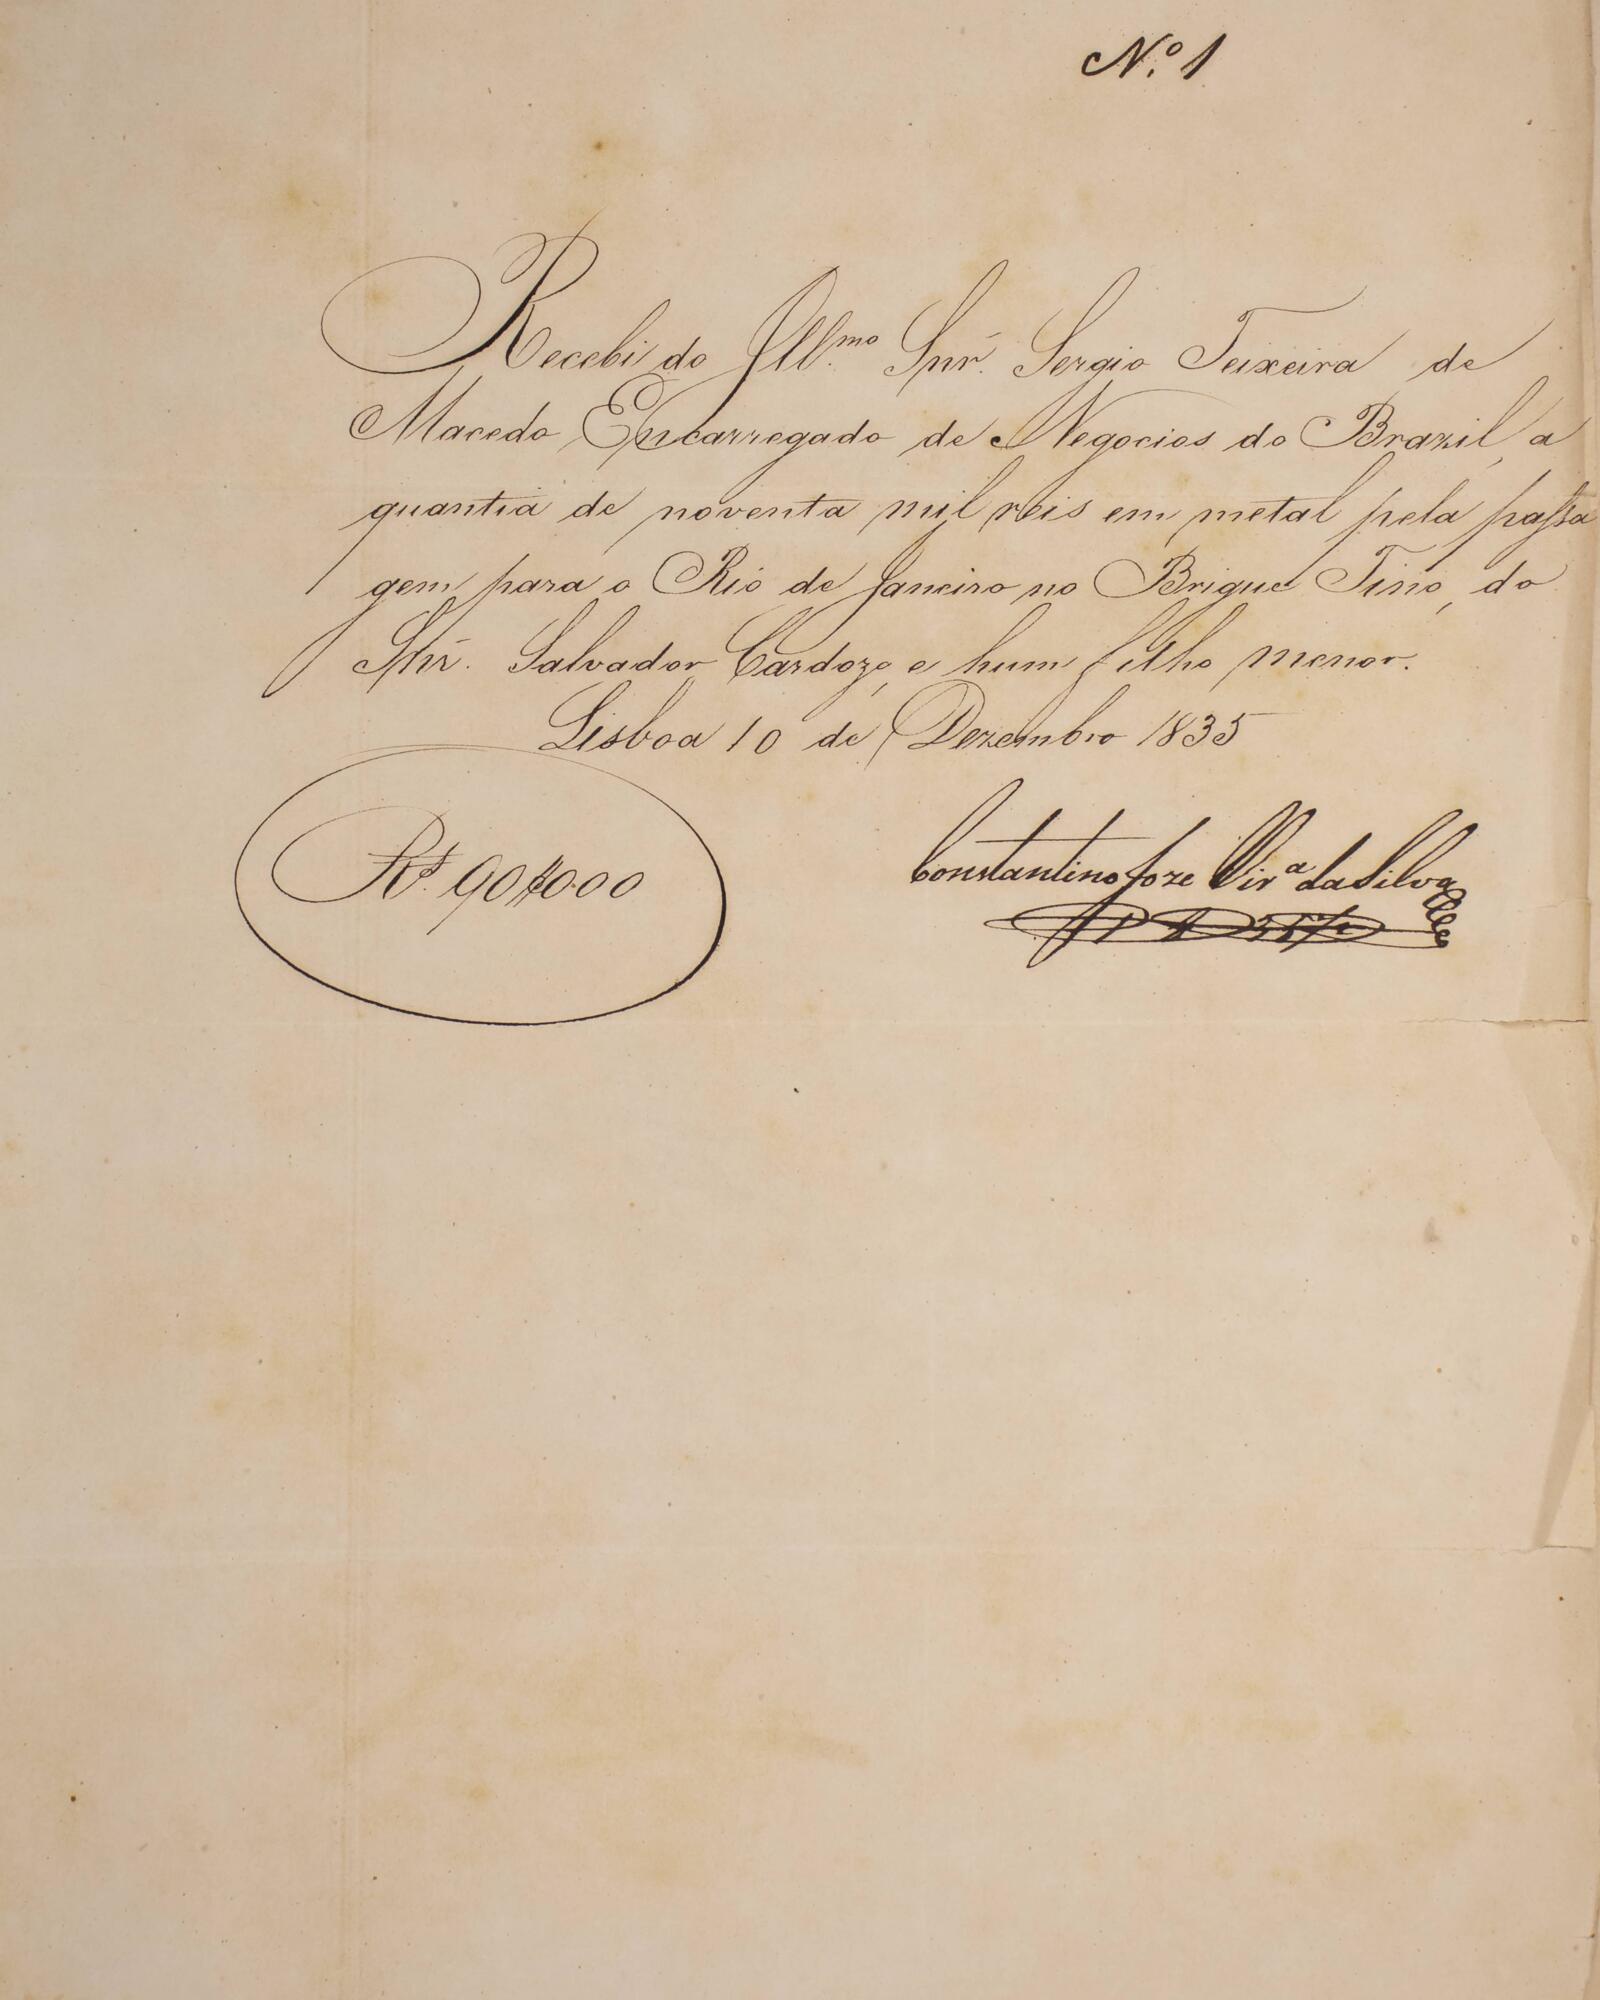 N.º 1
Recebi do Ill.mo Snr. Sergio Teixeira de
Macedo Encarregado de Negocios do Brazil, a
quantia de noventa mil reis em metal pela passa
gem para o Rio de Janeiro no Brigue Tino, do
Snr. Salvador Cardozo, e hum filho menor.
Lisboa 10 de Dezembro 1835
Rs. 90$000
Constantino Joze Vir.a da Silva